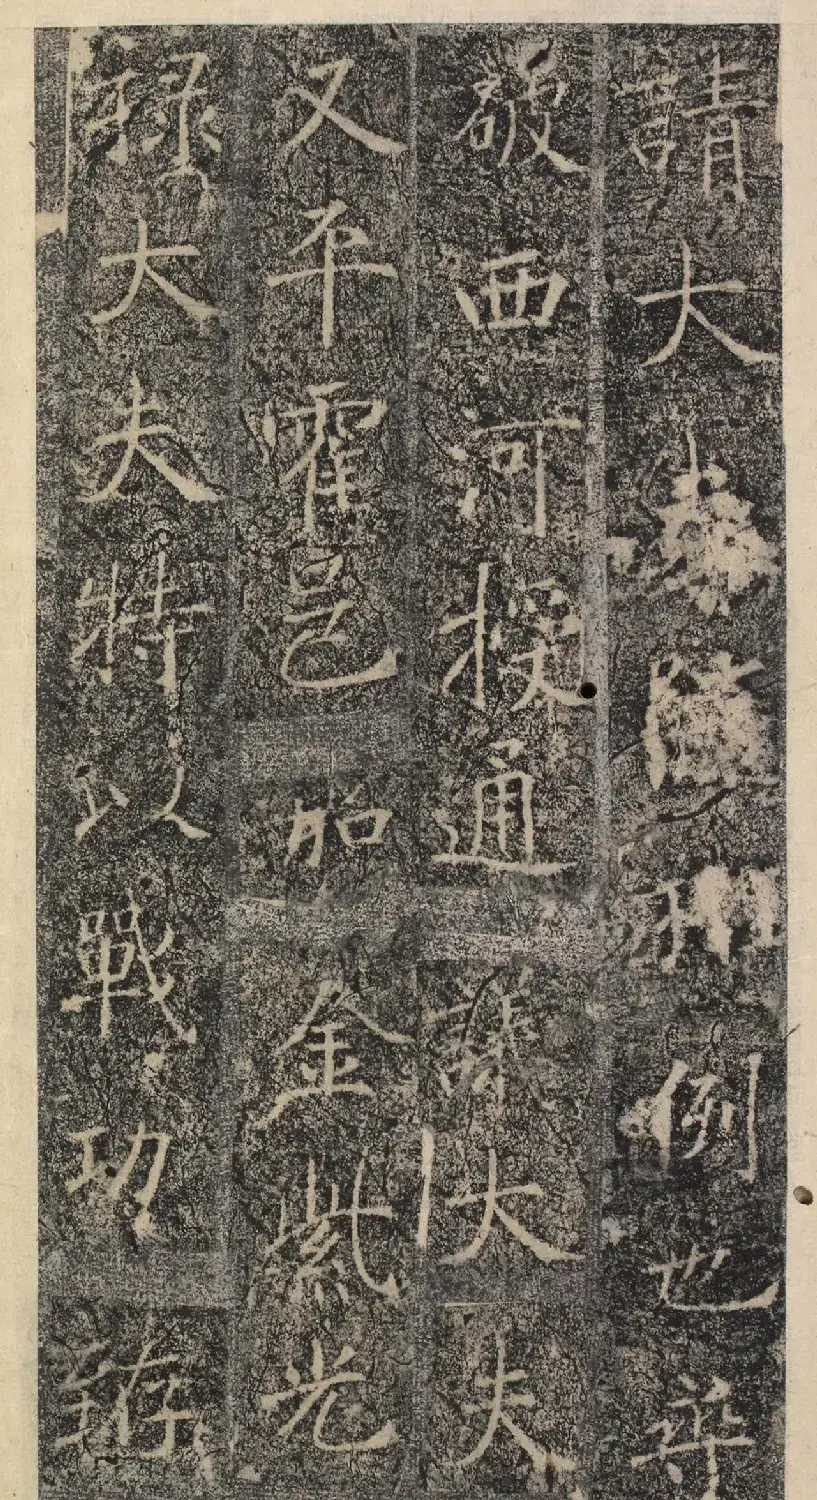 請大例也
破西河授通議大夫
又平霍邑加金紫光
祿大夫特以戰功